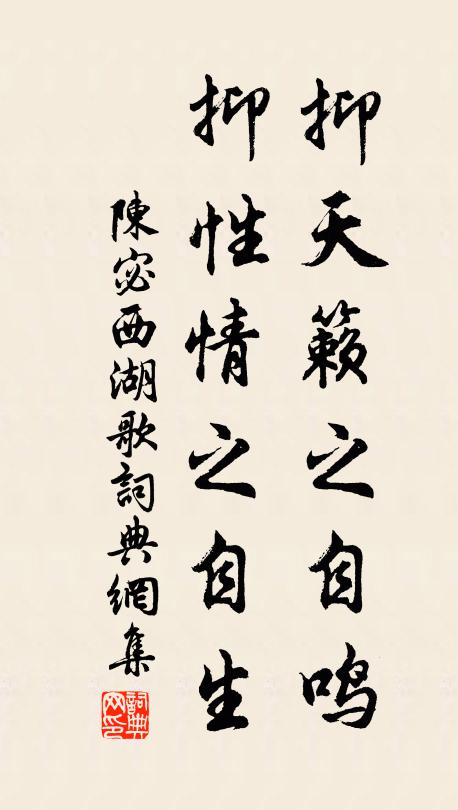 抑天籁之自鸣
抑性情之自生
陳宓西湖歌詞典網集
詞典網印